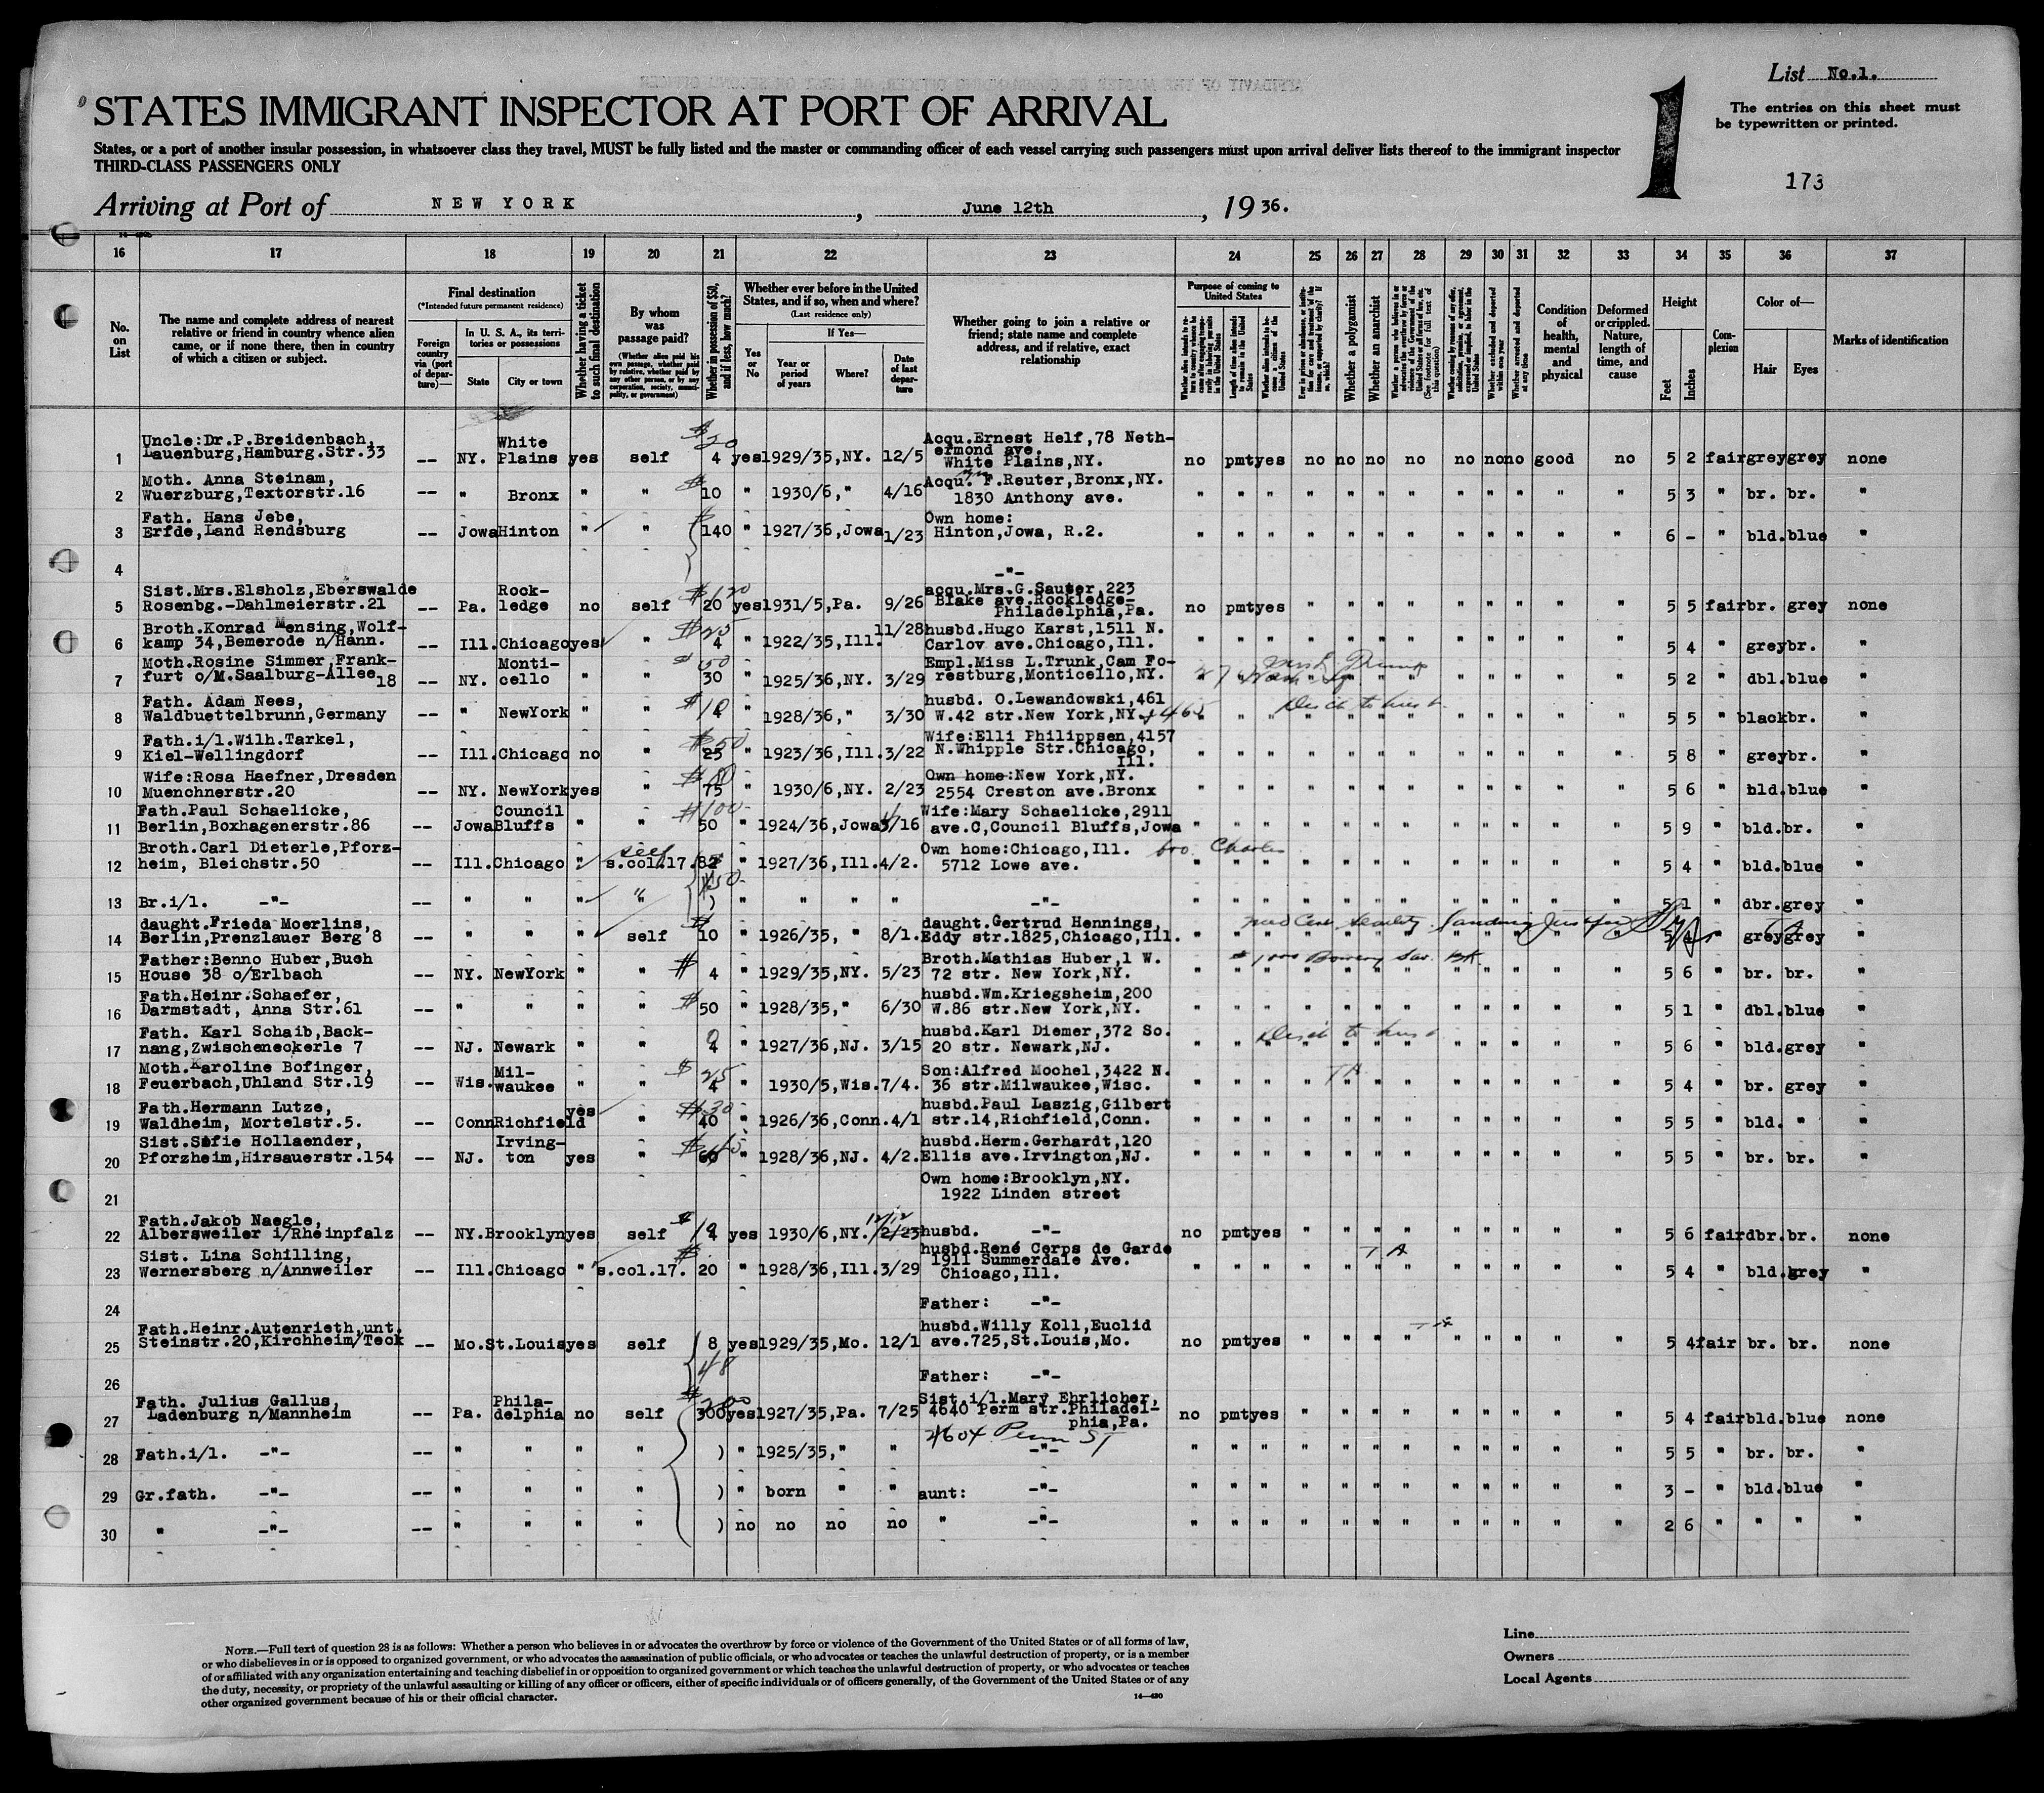 List No.1.
STATES IMMIGRANT INSPECTOR AT PORT OF ARRIVAL
1
The entries on this sheet must be typewritten or printed.
States, or a port of another insular possession, in whatsoever class they travel, MUST be fully listed and the master or commanding officer of each vessel carrying such passengers must upon arrival deliver lists thereof to the immigrant inspector
THIRD-CLASS PASSENGERS ONLY
173
Arriving at Port of NEW YORK, June 12th, 1936.
16 17 18 19 20 21 22 23 24 25 26 27 28 29 30 31 32 33 34 35 36 37
No. on List
The name and complete address of nearest relative or friend in country whence alien came, or if none there, then in country of which a citizen or subject.
Final destination
(*Intended future permanent residence)
Foreign country via (port of departure)—
In U. S. A., its territories or possessions
State
City or town
Whether having a ticket to such final destination
By whom was passage paid?
(Whether alien paid his own passage, whether paid by relative, whether paid by any other person, or by any corporation, society, municipality, or government)
Whether in possession of $50, and if less, how much?
Whether ever before in the United States, and if so, when and where?
(Last residence only)
Yes or No
If Yes—
Year or period of years
Where?
Date of last departure
Whether going to join a relative or friend; state name and complete address, and if relative, exact relationship
Purpose of coming to United States
Whether a polygamist
Whether an anarchist
Condition of health, mental and physical
Deformed or crippled. Nature, length of time, and cause
Height
Feet
Inches
Complexion
Color of—
Hair
Eyes
Marks of identification
1 Uncle:Dr.P.Breidenbach, Lauenburg,Hamburg.Str.33 -- NY. White Plains yes self $20 4 yes 1929/35,NY. 12/5 Acqu.Ernest Helf,78 Nethermond ave. White Plains,NY. no pmt yes no no no no no no no good no 5 2 fair grey grey none
2 Moth. Anna Steinam, Wuerzburg,Textorstr.16 -- " Bronx " " $ 10 " 1930/6," 4/16 Acqu. F.Reuter,Bronx,NY. 1830 Anthony ave. " " " " " " " " " " " " 5 3 " br. br. "
3 Fath. Hans Jebe, Erfde,Land Rendsburg -- Jowa Hinton " " $ 140 " 1927/36,Jowa 1/23 Own home: Hinton,Jowa, R.2. " " " " " " " " " " " " 6 - " bld. blue "
4 -"-
5 Sist.Mrs.Elsholz,Eberswalde Rosenbg.-Dahlmeierstr.21 -- Pa. Rockledge no self $120 20 yes 1931/5,Pa. 9/26 acqu.Mrs.G.Sauter,223 Blake ave.Rockledge-Philadelphia,Pa. no pmt yes " " " " " " " " " 5 5 fair br. grey none
6 Broth.Konrad Mensing,Wolfkamp 34,Bemerode n/Hann. -- Ill. Chicago yes " $25 4 " 1922/35,Ill. 11/28 husbd.Hugo Karst,1511 N. Carlov ave.Chicago,Ill. " " " " " " " " " " " " 5 4 " grey br. "
7 Moth.Rosine Simmer,Frankfurt o/M.Saalburg-Allee 18 -- NY. Monticello " " $50 30 " 1925/36,NY. 3/29 Empl.Miss L.Trunk,Cam Forestburg,Monticello,NY. " " " " " " " " " " " " 5 2 " dbl. blue "
8 Fath. Adam Nees, Waldbuettelbrunn,Germany -- " NewYork " " $10 4 " 1928/36," 3/30 husbd. O.Lewandowski,461 W.42 str.New York,NY. 465 Disch to husb. " " " " " " " " " " " " 5 5 " black br. "
9 Fath.i/l.Wilh.Tarkel, Kiel-Wellingdorf -- Ill. Chicago no " $50 25 " 1923/36,Ill. 3/22 Wife:Elli Philippsen,4157 N.Whipple Str.Chicago, Ill. " " " " " " " " " " " " 5 8 " grey br. "
10 Wife:Rosa Haefner,Dresden Muenchnerstr.20 -- NY. NewYork yes " 75 " 1930/6,NY. 2/23 Own home:New York,NY. 2554 Creston ave.Bronx " " " " " " " " " " " " 5 6 " bld. blue "
11 Fath.Paul Schaelicke, Berlin,Boxhagenerstr.86 -- Jowa Council Bluffs " " $100 50 " 1924/36,Jowa 3/16 Wife:Mary Schaelicke,2911 ave.C,Council Bluffs,Jowa " " " " " " " " " " " " 5 9 " bld. br. "
12 Broth.Carl Dieterle,Pforzheim, Bleichstr.50 -- Ill. Chicago " self s.col.17. " 1927/36,Ill. 4/2. Own home:Chicago,Ill. 5712 Lowe ave. bro. Charles " " " " " " " " " " " " 5 4 " bld. blue "
13 Br.i/l. -"- -- " " " " $50 ) " " " " -"- " " " " " " " " " " " " 5 1 " dbr. grey "
14 daught.Frieda Moerlins, Berlin,Prenzlauer Berg 8 -- " " " self $ 10 " 1926/35, " 8/1. daught.Gertrud Hennings, Eddy str.1825,Chicago,Ill. " " " " " " " " " " " " " grey grey "
15 Father:Benno Huber,Buch House 38 o/Erlbach -- NY. NewYork " " $ 4 " 1929/35,NY. 5/23 Broth.Mathias Huber,1 W. 72 str. New York,NY. $1000 Bowery Sav. Bk. " " " " " " " " " " " " 5 6 " br. br. "
16 Fath.Heinr.Schaefer, Darmstadt, Anna Str.61 -- " " " " $ 50 " 1928/35," 6/30 husbd.Wm.Kriegsheim,200 W.86 str.New York,NY. " " " " " " " " " " " " 5 1 " dbl. blue "
17 Fath. Karl Schaib,Backnang,Zwischeneckerle 7 -- NJ. Newark " " 4 " 1927/36,NJ. 3/15 husbd.Karl Diemer,372 So. 20 str. Newark,NJ. Disch to husb. " " " " " " " " " " " " 5 6 " bld. grey "
18 Moth.Karoline Bofinger, Feuerbach,Uhland Str.19 -- Wis. Milwaukee " " $25 4 " 1930/5,Wis. 7/4. Son:Alfred Mochel,3422 N. 36 str.Milwaukee,Wisc. TA " " " " " " " " " " " " 5 4 " br. grey "
19 Fath.Hermann Lutze, Waldheim, Mortelstr.5. -- Conn Richfield yes " $30 40 " 1926/36,Conn. 4/1 husbd.Paul Laszig,Gilbert str.14,Richfield,Conn. " " " " " " " " " " " " 5 5 " bld. " "
20 Sist.Sofie Hollaender, Pforzheim,Hirsauerstr.154 -- NJ. Irvington yes " 60 " 1928/36,NJ. 4/2. husbd.Herm.Gerhardt,120 Ellis ave.Irvington,NJ. " " " " " " " " " " " " 5 5 " br. br. "
21 Own home:Brooklyn,NY. 1922 Linden street
22 Fath.Jakob Naegle, Albersweiler i/Rheinpfalz -- NY. Brooklyn yes self $ 4 yes 1930/6,NY. 12/12 2/23 husbd. -"- no pmt yes " " " " " " " " " 5 6 fair dbr. br. none
23 Sist. Lina Schilling, Wernersberg n/Annweiler -- Ill. Chicago " s.col.17. $ 20 " 1928/36,Ill. 3/29 husbd.René Cerps de Garde 1911 Summerdale Ave. Chicago,Ill. TA " " " " " " " " " " " " 5 4 " bld. grey "
24 Father: -"-
25 Fath.Heinr.Autenrieth,unt. Steinstr.20,Kirchheim/Teck -- Mo. St.Louis yes self 8 yes 1929/35,Mo. 12/1 husbd.Willy Koll,Euclid ave.725,St.Louis,Mo. no pmt yes " " " " " " " " " 5 4 fair br. br. none
48
26 Father: -"-
27 Fath. Julius Gallus, Ladenburg n/Mannheim -- Pa. Philadelphia no self $200 300 yes 1927/35,Pa. 7/25 Sist.i/l.Mary Ehrlicher, 4640 Perm str.Philadelphia,Pa. no pmt yes " " " " " " " " " 5 4 fair bld. blue none
4604 Penn St
28 Fath.i/l. -"- -- " " " " ) " 1925/35," " -"- " " " " " " " " " " " " 5 5 " br. br. "
29 Gr.fath. -"- -- " " " " ) " born " " aunt: -"- " " " " " " " " " " " " 3 - " bld. blue "
30 " -"- -- " " " " ) no no no no " -"- " " " " " " " " " " " " 2 6 " " " "
NOTE.—Full text of question 28 is as follows: Whether a person who believes in or advocates the overthrow by force or violence of the Government of the United States or of all forms of law,
or who disbelieves in or is opposed to organized government, or who advocates the assassination of public officials, or who advocates or teaches the unlawful destruction of property, or is a member
of or affiliated with any organization entertaining and teaching disbelief in or opposition to organized government or which teaches the unlawful destruction of property, or who advocates or teaches
the duty, necessity, or propriety of the unlawful assaulting or killing of any officer or officers, either of specific individuals or of officers generally, of the Government of the United States or of any
other organized government because of his or their official character.
14—430
Line
Owners
Local Agents